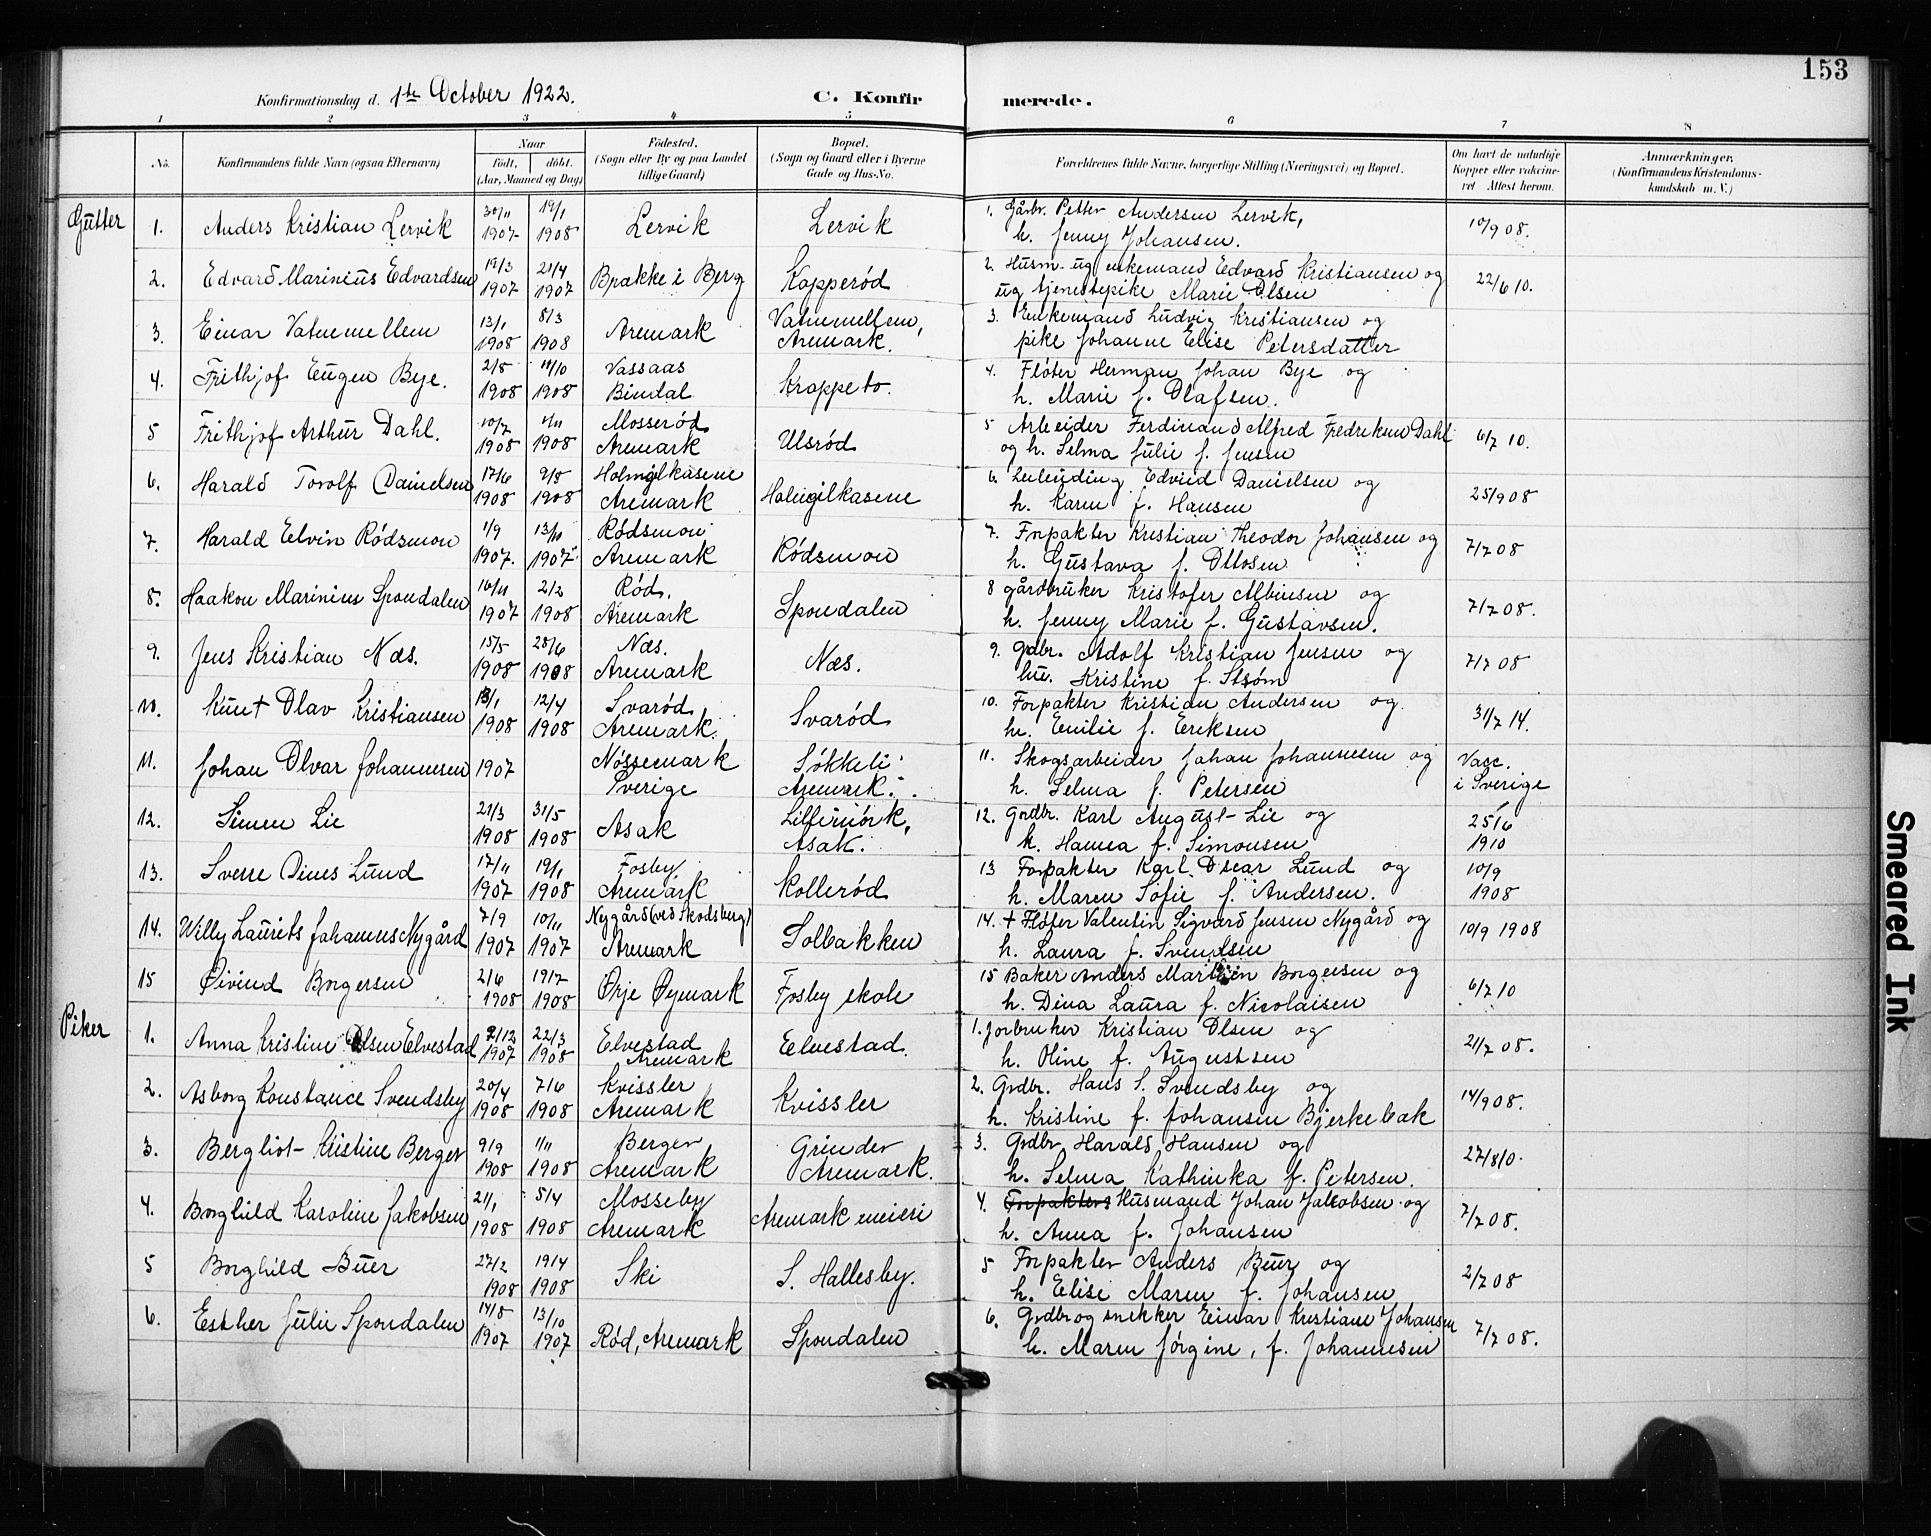 153
Konfirmationsdag d. 1ste October 1922. C. Konfirmerede.
1 2 3 4 5 6 7 8
No. Konfirmandens fulde Navn (ogsaa Efternavn) Naar født, døbt. (Aar, Maaned og Dag) Fødested. (Sogn eller By og paa Landet tillige Gaard) Bopæl. (Sogn og Gaard eller i Byerne Gade og Hus-No. Forældrenes fulde Navne, borgerlige Stilling (Næringsvei) og Bopæl. Om havt de naturlige Kopper eller vakcineret Attest herom. Anmærkninger. (Konfirmandens Kristendomskundskab m. V.)
Gutter
1. Anders Kristian Lervik 30/11 1907 19/1 1908 Lervik Lervik 1. Gårbr. Petter Andersen Lervik, h. Jenny Johansen. 10/9 08.
2. Edvard Marinius Edvardsen 19/3 1907 21/4 1907 Brakke i Berg Kopperød 2. Husm. ug enkemand Edvard Kristiansen og ug tjenestepike Marie Olsen 22/6 10.
3. Einar Vatnemellem 13/1 1908 8/3 1908 Aremark Vatnemellem, Aremark. 3. Enkemand Ludvig Kristiansen og pike Johanne Elise Petersdatter
4. Frithjof Eugen Bye. 2/8 1908 11/10 1908 Vassaas Bindal Kroppeto. 4. Fløter Herman Johan Bye og h. Marie f. Olafsen.
5 Frithjof Arthur Dahl. 10/7 1908 1/11 1908 Mosserød Aremark Ulsrød 5 Arbeider Ferdinand Alfred Fredriksen Dahl og h. Selma Julie f. Jensen 6/7 10.
6. Harald Torolf Danielsen 17/6 1908 9/8 1908 Holmgilkasene Aremark Holmgilkasene 6. Leilending Edvind Danielsen og h. Karen f. Hansen 25/9 08
7. Harald Elvin Rødsmon 1/9 1907. 13/10 1907. Rødsmon Aremark Rødsmon 7. Forpakter Kristian Theodor Johansen og h. Gustava f. Ottosen 7/7 08
8. Haakon Marinius Spondalen 10/11 1907 2/2 1908 Rød. Aremark Spondalen 8 gårdbruker Kristofer Albinsen og h. Jenny Marie f. Gustavsen. 7/7 08.
9. Jens Kristian Næs. 15/5 1908 28/6 1908 Næs. Aremark Næs. 9. Grdbr. Adolf Kristian Jensen og hu. Kristine f. Strøm 7/7 08
10. Knut Olav Kristiansen 13/1 1908 12/4 1908 Svarød Aremark. Svarød 10. Forpakter Kristian Andersen og hu. Emilie f. Eriksen 31/7 14.
11. Johan Olvar Johannesen 1907 Nössemark Sverige Søkkeli Aremark. 11. Skogsarbeider Johan Johannesen og h. Selma f. Petersen Vacc. i Sverige
12. Simen Lie 21/3 1908 31/5 1908 Asak Asak. 12. Grdbr. Karl August Lie og h. Hanna f. Simonsen 25/6 1910
13. Sverre Dines Lund 17/11 1907 19/1 1908 Fosby Aremark Kollerød 13 Forpakter Karl Oscar Lund og h. Maren Sofie f. Andersen. 10/9 1908
14. Willy Laurits Johannes Nygård 7/9 1907 10/11 1907 Nygård (ved Skodsberg) Aremark Solbakken 14. + Fløter Valentin Sigvard Jensen Nygård og h. Laura f. Svendsen 10/9 1908
15 Øivind Borgersen 2/6 1908 19/7 1908 Ørje Øymark Fosby skole 15 Baker Anders Martin Borgersen og h. Dina Laura f. Nicolaisen 6/7 10
Piker
1. Anna Kristine Olsen Elvestad 2/12 1907 22/3 1908 Elvestad Aremark Elvestad. 1. Jorbruker Kristian Olsen og h. Oline f. Augustsen 21/7 08.
2. Asborg Konstance Svendsby 20/4 1908 7/6 1908 Kvissler Aremark Kvissler 2. Grdbr. Hans S. Svendsby og h. Kristine f. Johansen Bjerkebak 14/9 08.
3. Bergliot Kristine Berger 9/9 1908 1/11 1908 Berger Aremark Grinder Aremark. 3. Grdbr. Harald Hansen og h. Selma Kathinka f. Petersen. 27/8 10.
4. Borghild Karoline Jakobsen 21/1 1908 5/4 1908 Mosseby Aremark Aremark meieri 4. Forpakter Husmand Johan Jakobsen og h. Anna f. Johansen 7/7 08.
5 Borghild Buer 27/2 1908 19/4 1908 Ski S. Hallesby. 5 Forpakter Anders Buer og h. Elise Maren f. Johansen 2/7 08
6. Esther Julie Spondalen 14/8 1907 13/10 1907 Rød, Aremark Spondalen 6. Grdbr og snekker Einar Kristian Johansen h. Maren Jørgine, f. Johannesen 7/7 08.
Smeared Ink